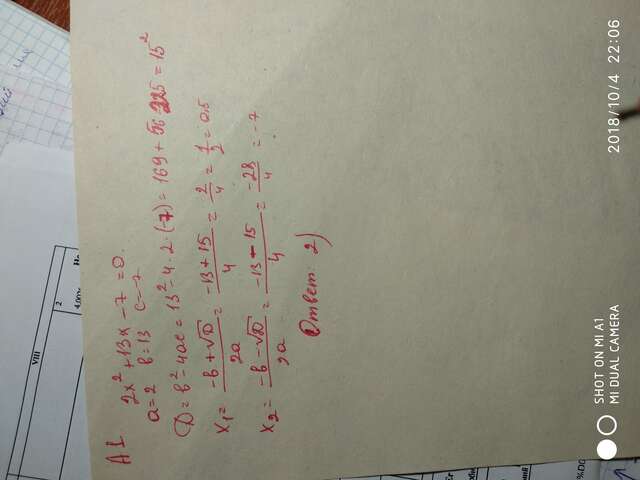 VIII
2
4.00%
A1
2x² + 13x - 7 = 0.
a = 2 b = 13 c = -7
D = b² - 4ac = 13² - 4 · 2 · (-7) = 169 + 56 225 = 15²
x₁ = (-b + √D)/2a = (-13 + 15)/4 = 2/4 = 1/2 = 0,5
x₂ = (-b - √D)/2a = (-13 - 15)/4 = -28/4 = -7
Ответ: 2)
SHOT ON MI A1
MI DUAL CAMERA
2018/10/4 22:06